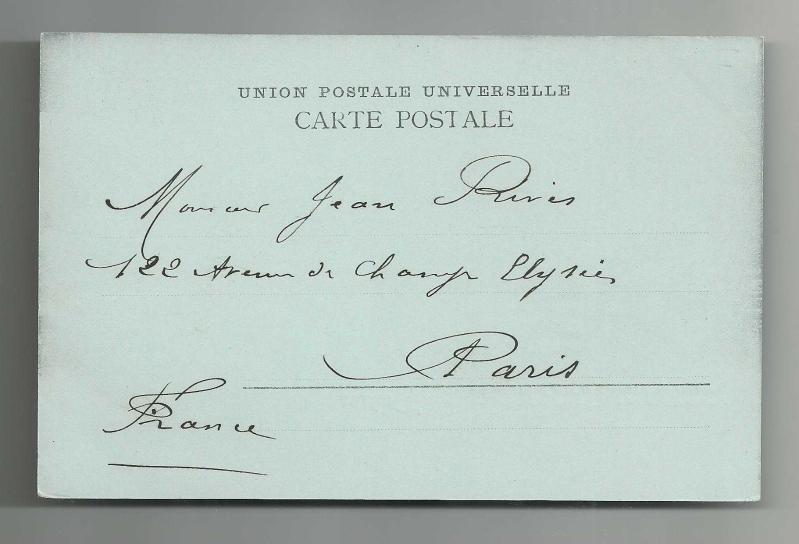 UNION POSTALE UNIVERSELLE
CARTE POSTALE
Monsieur Jean Rivès
122 Avenue de Champs Elysées
Paris
France